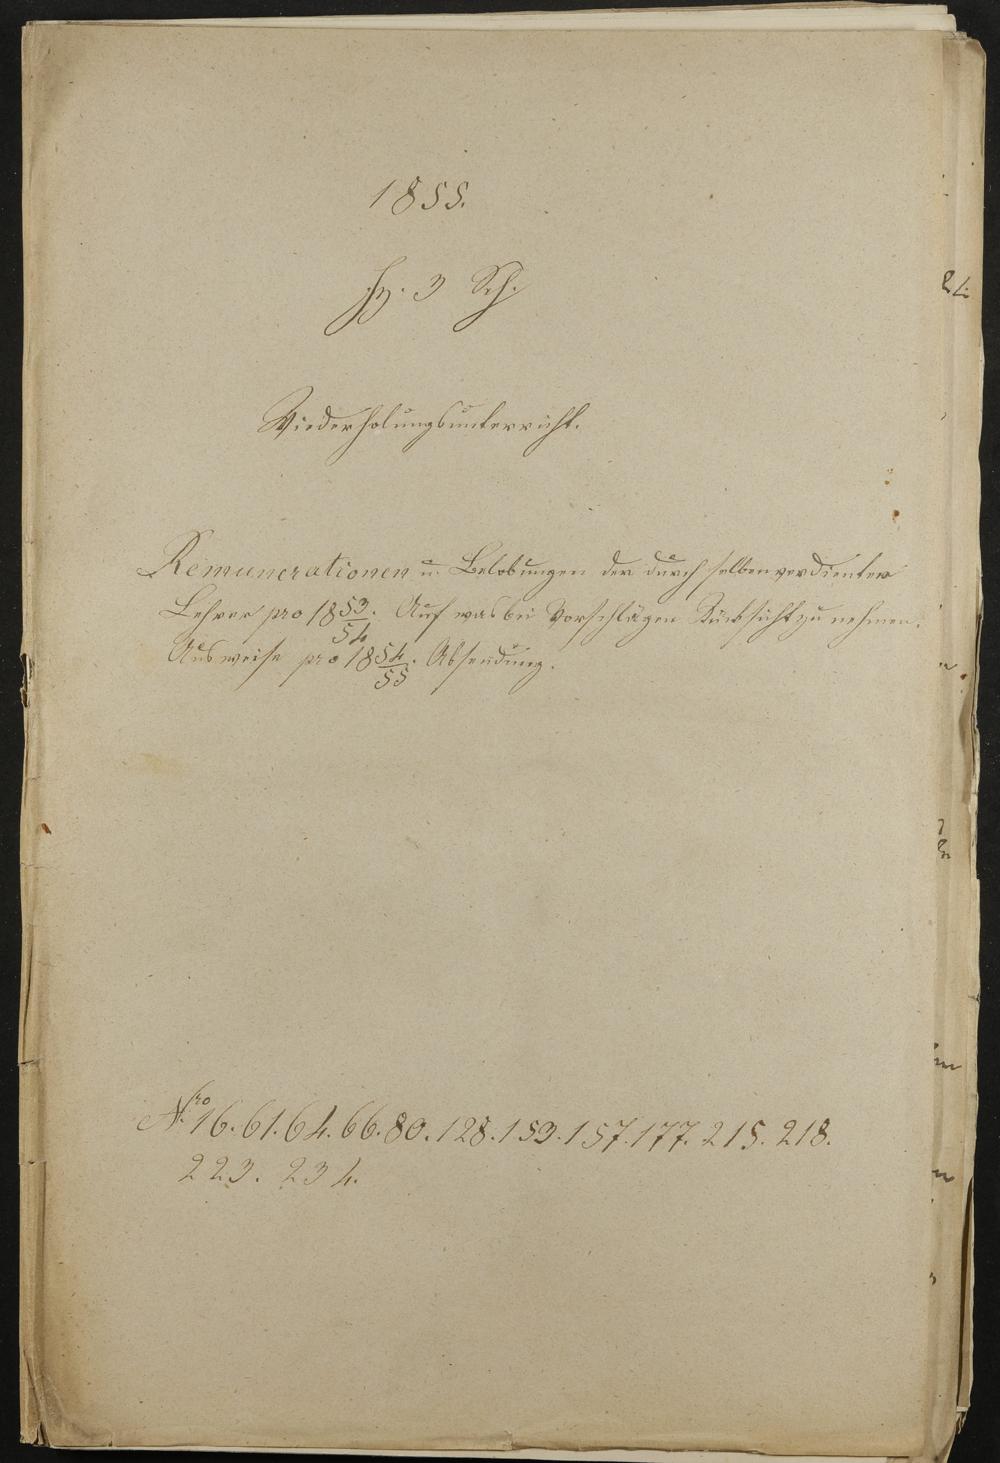 1855.
Fz. 3 Sch.
Wiederholungsunterricht.
Remunerationen u. Belobungen der durch selben verdienten
Lehrer pro 1853/54. Auf was bei Vorschlägen Rücksicht zu nehmen.
Ausweise pro 1854/55. Absendung.
Nro 16. 61. 64. 66. 80. 128. 153. 157. 177. 215. 218.
223. 234.